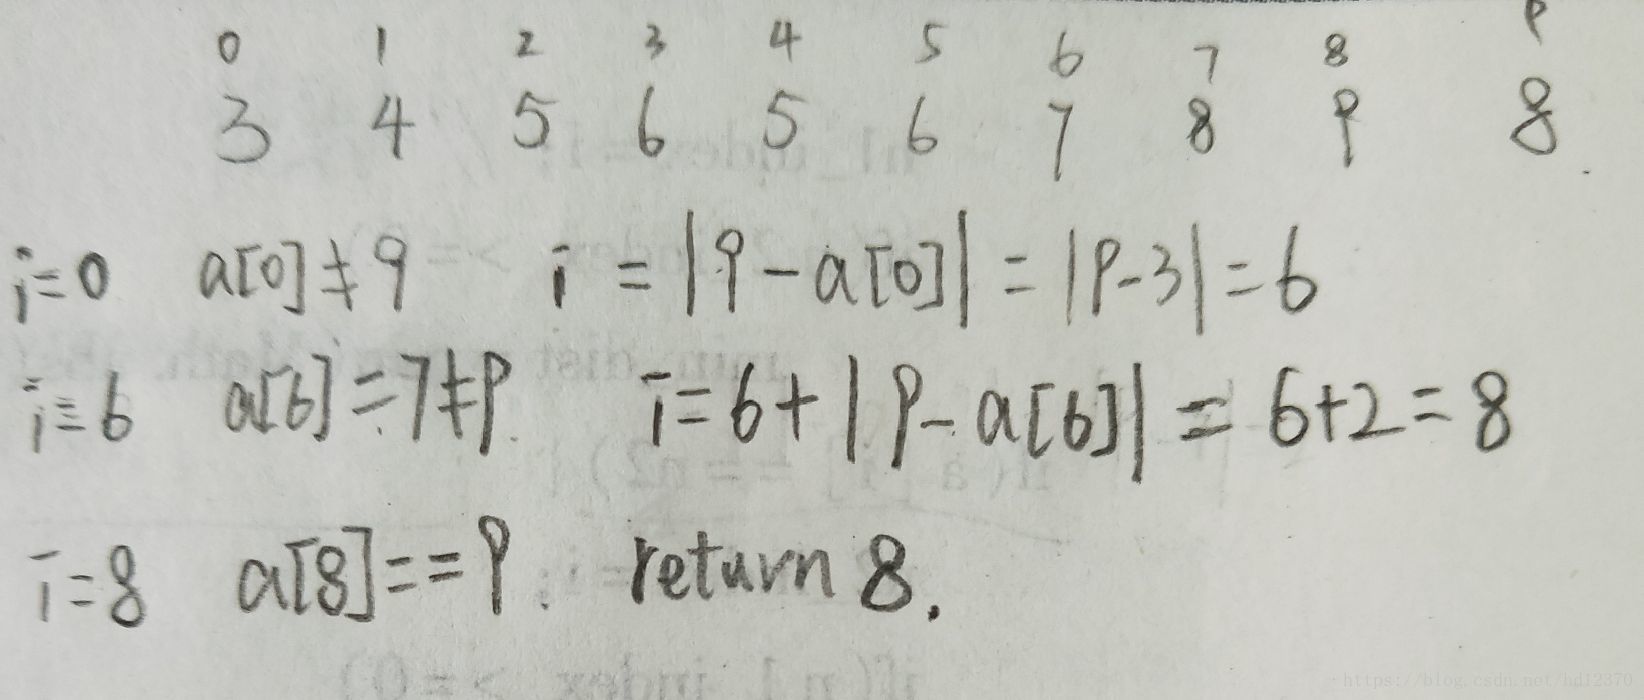 0 1 2 3 4 5 6 7 8 9
3 4 5 6 5 6 7 8 9 8
i=0 a[0]≠9 i = |9-a[0]| = |9-3| = 6
i=6 a[6]=7≠9 i=6+|9-a[6]| = 6+2=8
i=8 a[8]==9. return 8.
https://blog.csdn.net/hd12370